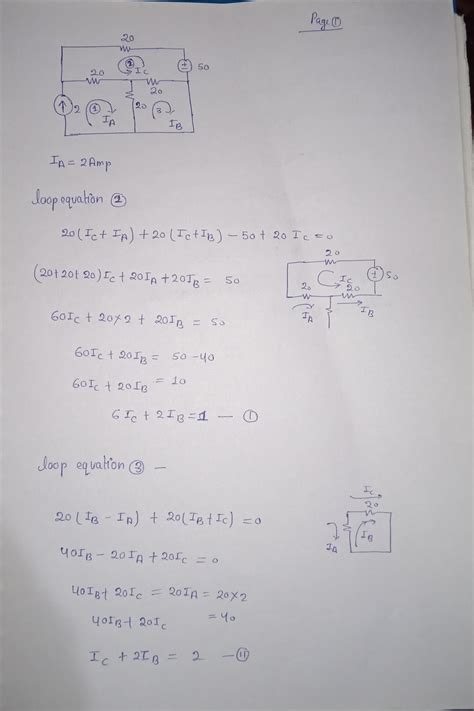 Page ①
20
② I_C
± 50
20
20
2
① I_A
20
3 I_B
I_A = 2 Amp
loop equation ②
20(I_C + I_A) + 20(I_C + I_B) - 50 + 20 I_C = 0
(20+20+20)I_C + 20I_A + 20I_B = 50
20
I_C
± 50
20
20
I_A
I_B
60I_C + 20×2 + 20I_B = 50
60I_C + 20I_B = 50 - 40
60I_C + 20I_B = 10
6I_C + 2I_B = 1 — ①
loop equation ③ —
20(I_B - I_A) + 20(I_B + I_C) = 0
I_C
20
I_A
I_B
40I_B - 20I_A + 20I_C = 0
40I_B + 20I_C = 20I_A = 20×2
40I_B + 20I_C = 40
I_C + 2I_B = 2 — ⑪